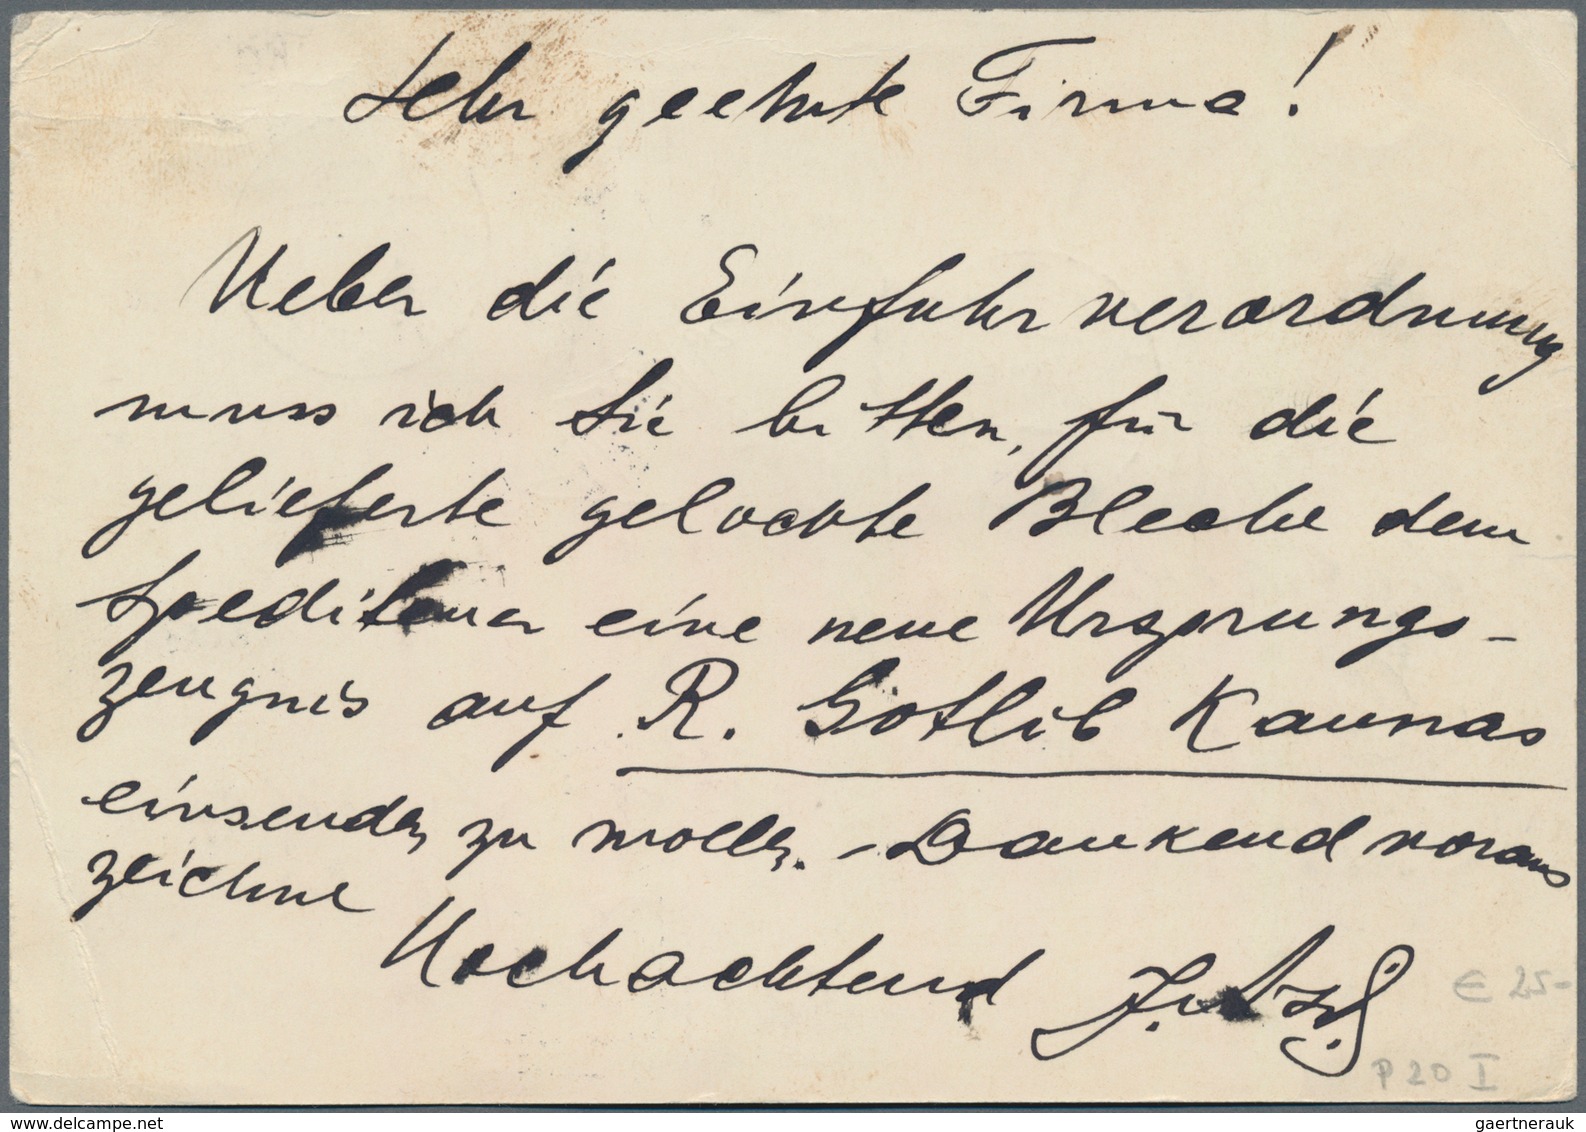 Sehr geehrte Firma!
Ueber die Einfuhrverordnung
muss ich Sie bitten, für die
gelieferte gelochte Bleche dem
Spediteur eine neue Ursprungs-
zeugnis auf R. Gotlib Kaunas
einsenden zu wollen. – Dankend voraus
zeichne
Hochachtend
€ 25-
P 20 I
www.delcampe.net
gaertnerauk